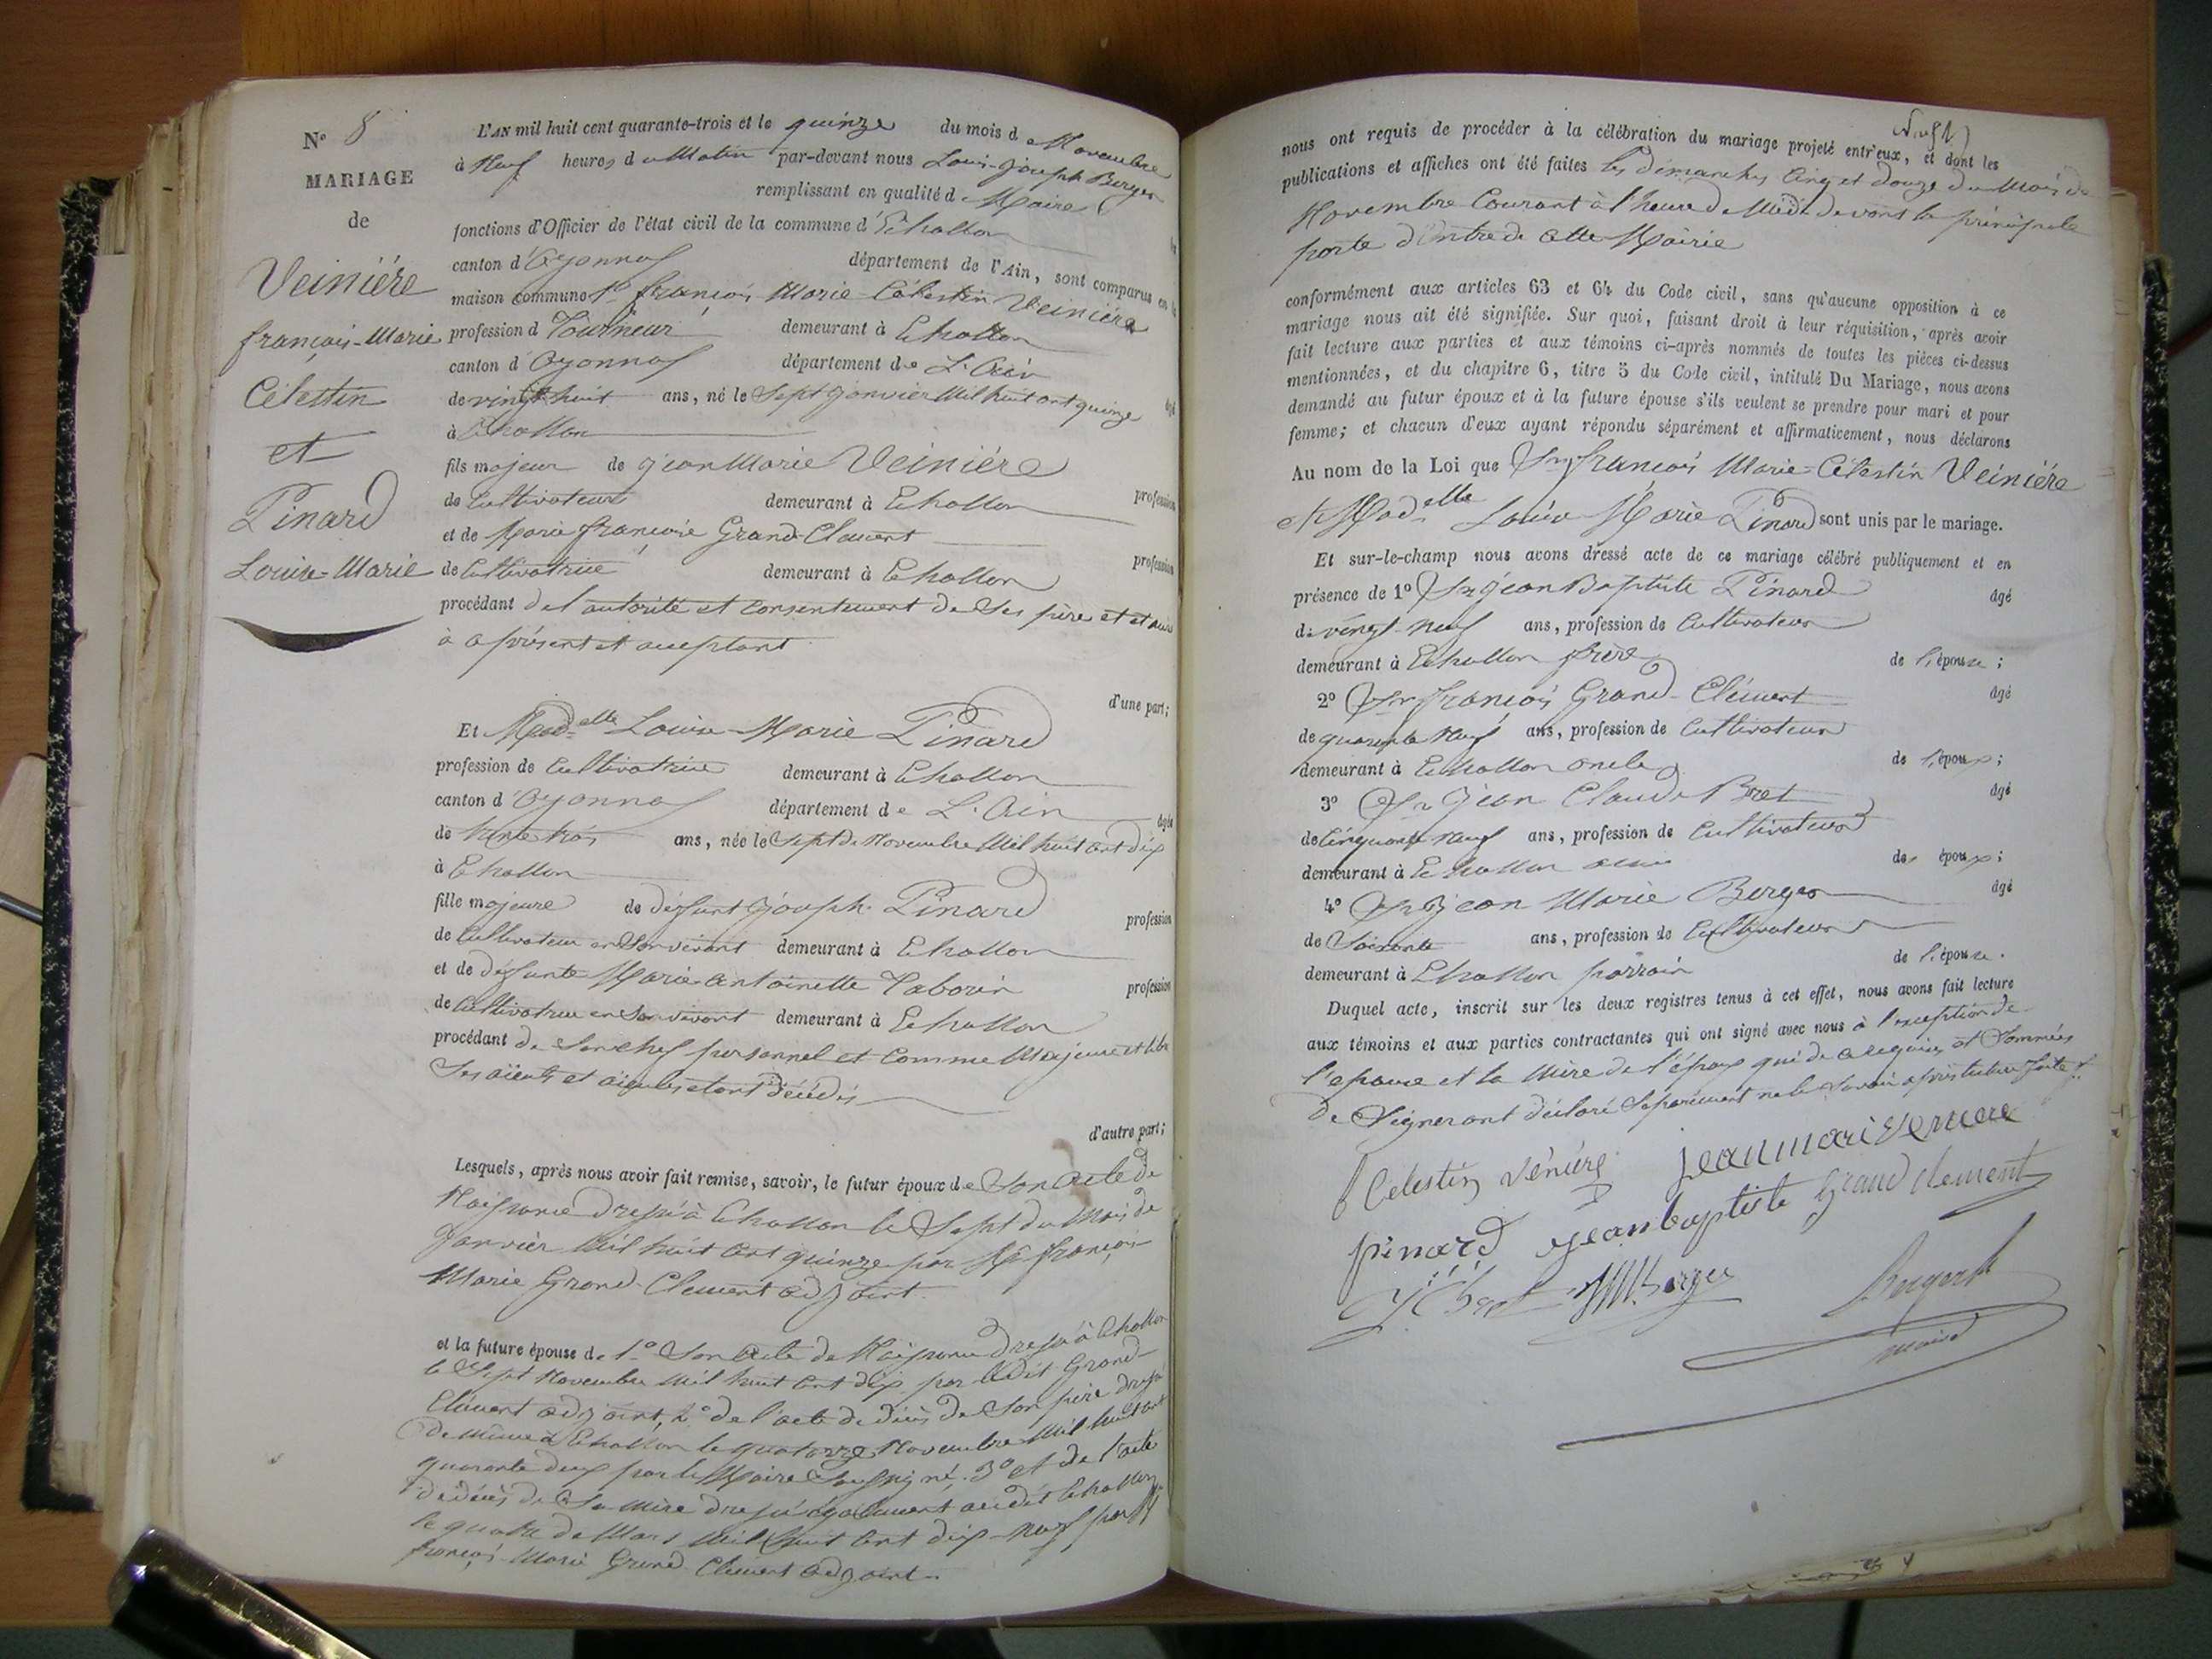 N° 8
MARIAGE
de
Veiniére
françois-Marie
Célestin
et
Pinard
Louise-Marie
L'AN mil huit cent quarante-trois et le quinze du mois de Novembre
à Neuf heures du Matin par-devant nous Louis-Joseph Berger
remplissant en qualité de Maire les
fonctions d'Officier de l'état civil de la commune d'Echallon
canton d'Oyonnax département de l'Ain, sont comparus en la
maison commune 1° françois Marie-Célestin Veiniére
profession d Tourneur demeurant à Echallon
canton d'Oyonnax département de L'Ain
âgé
de vingt huit ans, né le Sept Janvier Mil huit cent quinze
à Echallon
fils majeur de Jean Marie Veiniére
profession
de Cultivateur demeurant à Echallon
et de Marie françoise Grand-Clement
profession
de Cultivatrice demeurant à Echallon
procédant de l'autorité et consentement de Ses père et et mère
à a présent et acceptant
d'une part;
Et Madelle Louise-Marie Pinard
profession de Cultivatrice demeurant à Echallon
canton d'Oyonnax département de L'Ain
âgée
de trente trois ans, née le Sept de Novembre Mil huit cent dix
à Echallon
fille majeure de défunt Joseph Pinard
profession
de Cultivateur en Son vivant demeurant à Echallon
et de défunte Marie Antoinette Tabouin
profession
de Cultivatrice en Son vivant demeurant à Echallon
procédant de Son chef personnel et comme Majeure et libre
Ses aïeuls et aïeules étant décédés
d'autre part;
Lesquels, après nous avoir fait remise, savoir, le futur époux de Son acte de
Naissance dressé à Echallon le Sept du Mois de
Janvier Mil huit cent quinze par Mr françois
Marie Grand-Clement adjoint.
et la future épouse de 1° Son acte de Naissance dressé à Echallon
le Sept Novembre Mil huit cent dix par ledit Grand-
Clément adjoint, 2° de l'acte de décès de Son père dressé
de même à Echallon le quatorze Novembre Mil huit cent
quarante deux par le Maire Soussigné. 3° et de l'acte
de décès de Sa mère dressé également audit Echallon
le quatre de Mars Mil huit cent dix-neuf par Mr
françois-Marie Grand-Clement adjoint.
nous ont requis de procéder à la célébration du mariage projeté entr'eux, et dont les
publications et affiches ont été faites les dimanches Cinq et douze du Mois de
Novembre Courant à l'heure de Midi devant la principale
porte d'entrée de cette Mairie
conformément aux articles 63 et 64 du Code civil, sans qu'aucune opposition à ce
mariage nous ait été signifiée. Sur quoi, faisant droit à leur réquisition, après avoir
fait lecture aux parties et aux témoins ci-après nommés de toutes les pièces ci-dessus
mentionnées, et du chapitre 6, titre 5 du Code civil, intitulé Du Mariage, nous avons
demandé au futur époux et à la future épouse s'ils veulent se prendre pour mari et pour
femme; et chacun d'eux ayant répondu séparément et affirmativement, nous déclarons
Au nom de la Loi que Sr françois Marie-Célestin Veiniére
et Madelle Louise Marie Pinard sont unis par le mariage.
Et sur-le-champ nous avons dressé acte de ce mariage célébré publiquement et en
présence de 1° Sr Jean Baptiste Pinard âgé
de vingt-neuf ans, profession de Cultivateur
demeurant à Echallon frère de l'épouse;
2° Sr françois Grand-Clément âgé
de quarante Neuf ans, profession de Cultivateur
demeurant à Echallon oncle de l'époux;
3° Sr Jean Claude Bret âgé
de Cinquante neuf ans, profession de Cultivateur
demeurant à Echallon ami des époux;
4° Sr Jean Marie Berger âgé
de Soixante ans, profession de Cultivateur
demeurant à Echallon parrain de l'épouse.
Duquel acte, inscrit sur les deux registres tenus à cet effet, nous avons fait lecture
aux témoins et aux parties contractantes qui ont signé avec nous à l'exception de
l'épouse et la Mère de l'époux qui de ce requises et Sommées
de Signer ont déclaré Séparément ne le Savoir après lecture faite
Celestin Véniére jean marie veniere
pinard jean baptiste grand clement
JC bret JM Berger
maire